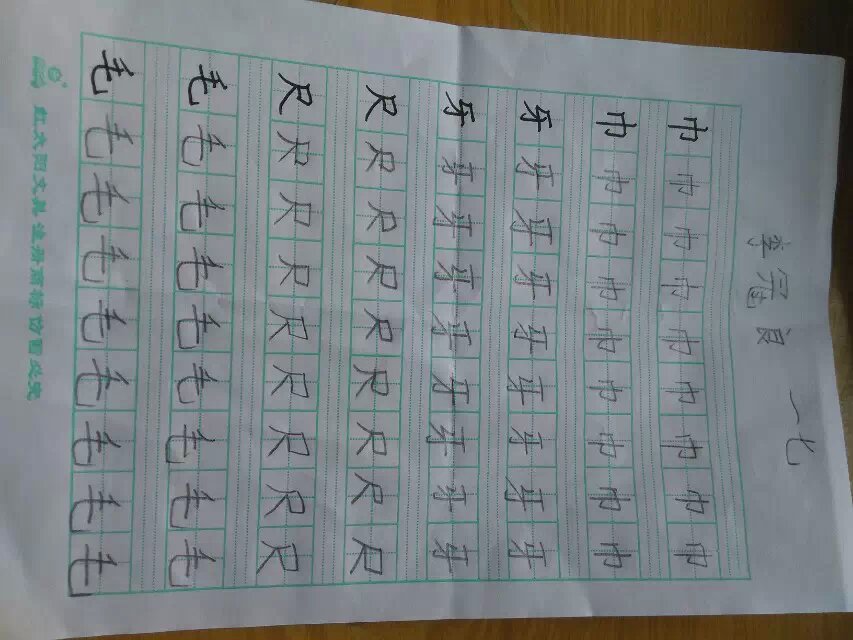 李冠良 一七
巾巾巾巾巾巾巾巾巾
巾巾巾巾巾巾巾巾巾
牙牙牙牙牙牙牙牙牙
牙牙牙牙牙牙牙牙牙
尺尺尺尺尺尺尺尺尺
尺尺尺尺尺尺尺尺尺
毛毛毛毛毛毛毛毛毛
毛毛毛毛毛毛毛毛毛
红太阳文具 注册商标 仿冒必究